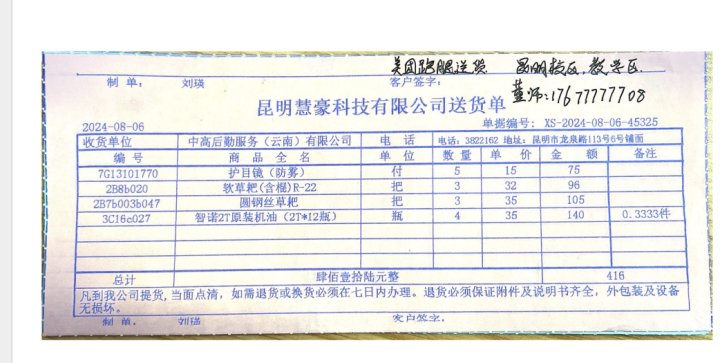 美团跑腿送货 昆明校区,教学区
制 单: 刘瑛 客户签字:
董师:17677777708
昆明慧豪科技有限公司送货单
2024-08-06 单据编号: XS-2024-08-06-45325
收货单位 中高后勤服务(云南)有限公司 电 话 电话:3822162 地址:昆明市龙泉路113号6号铺面
编 号 商 品 全 名 单 位 数 量 单 价 金 额 备注
7G13101770 护目镜(防雾) 付 5 15 75
2B8b020 软草耙(含棍)R-22 把 3 32 96
2B7b003b047 圆钢丝草耙 把 3 35 105
3C16c027 智诺2T原装机油(2T*12瓶) 瓶 4 35 140 0.3333件
总计 肆佰壹拾陆元整 416
凡到我公司提货,当面点清,如需退货或换货必须在七日内办理。退货必须保证附件及说明书齐全,外包装及设备
无损坏。
制 单: 刘瑛 客户签字: